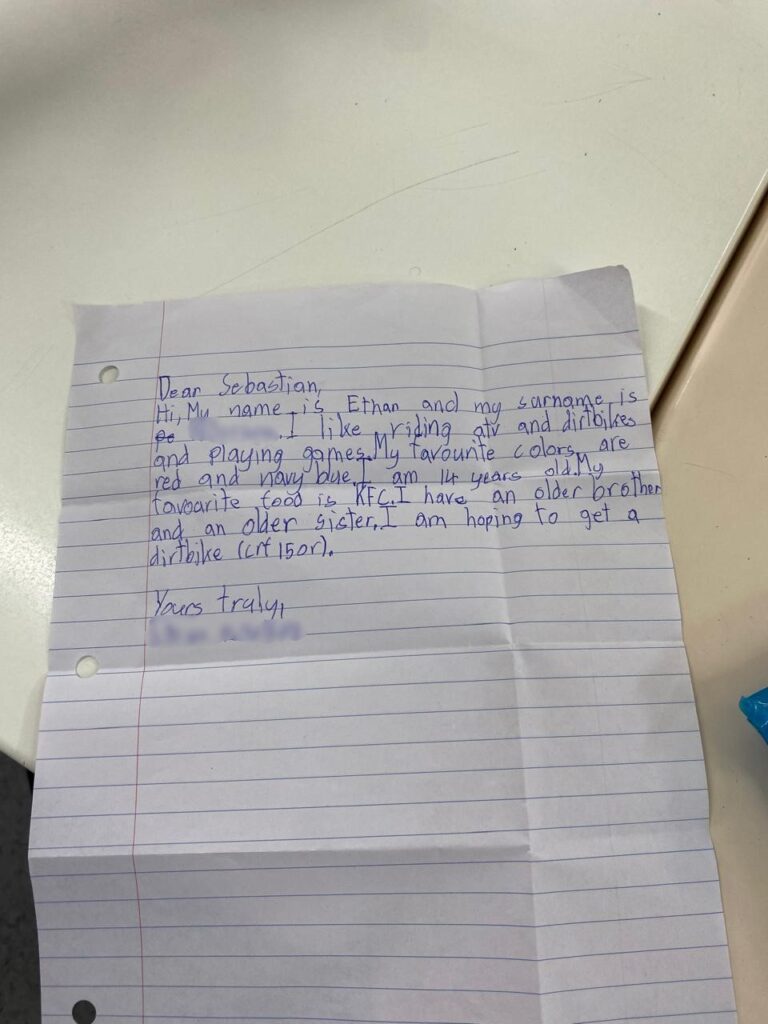 Dear Sebastian,
Hi, My name is Ethan and my surname is
I like riding atv and dirtbikes
and playing games. My favourite colors are
red and navy blue. I am 14 years old. My
favoarite food is KFC. I have an older brother
and an older sister. I am hoping to get a
dirtbike (crf 150r).
Yours traly,